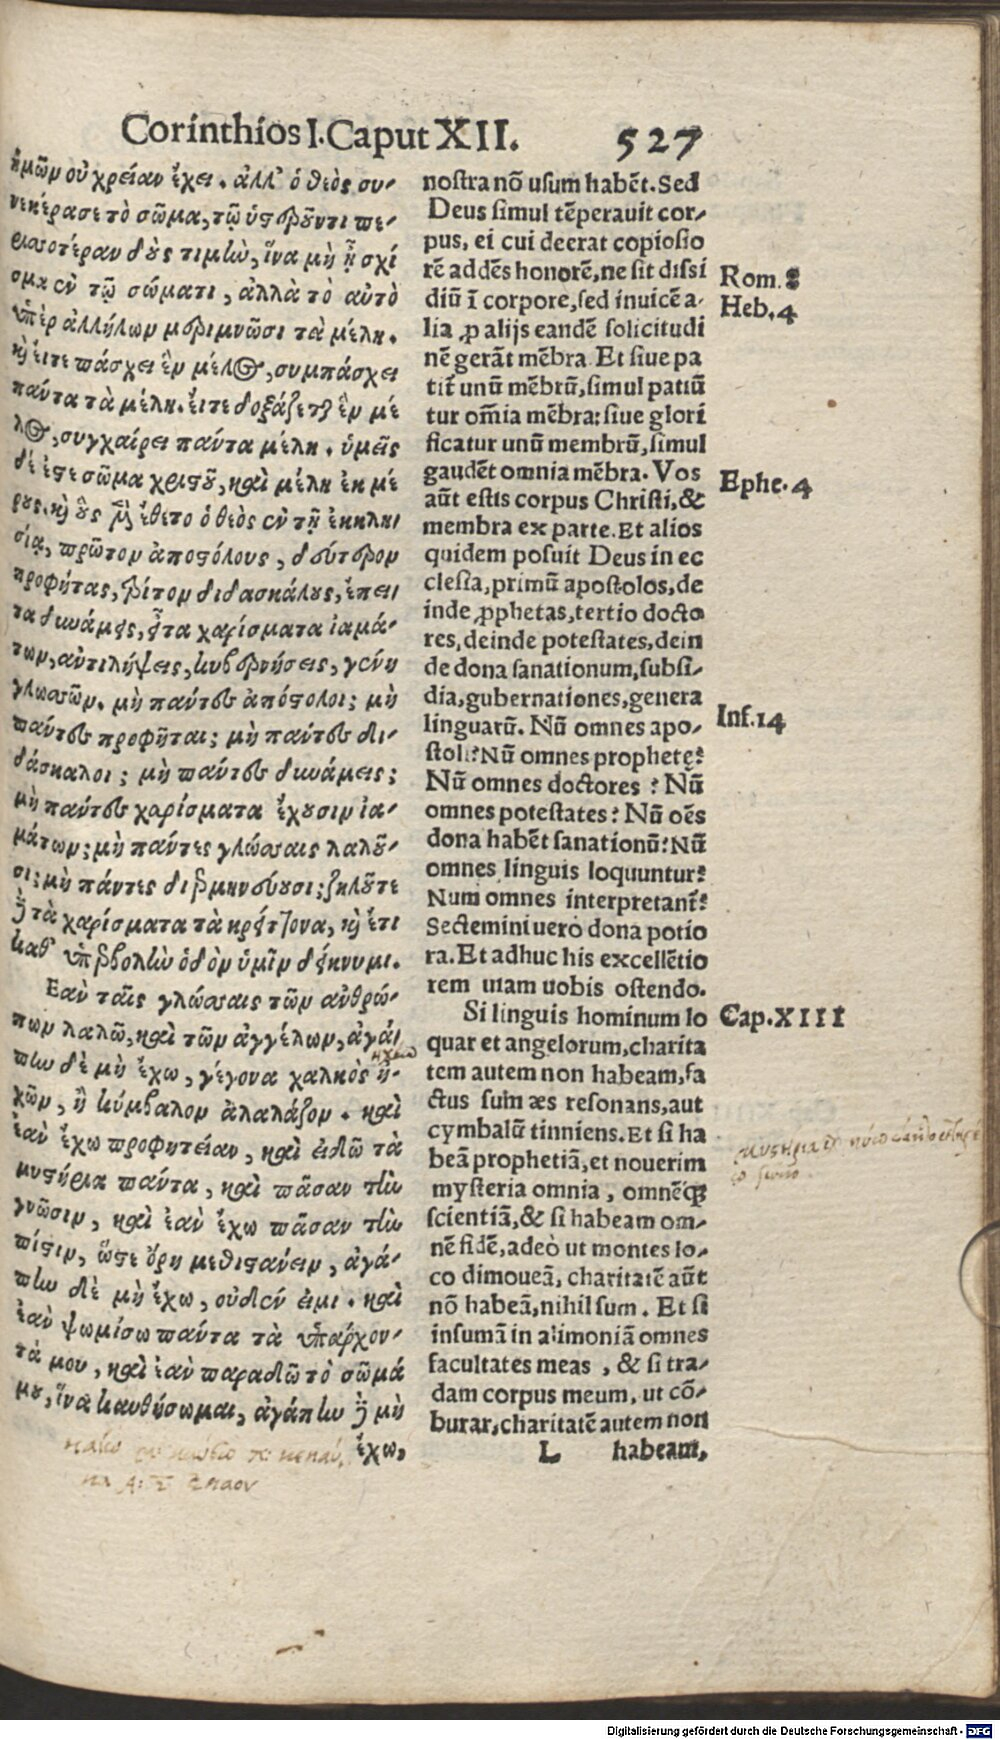 Corinthios I. Caput XII. 527
ἡμῶν οὐ χρείαν ἔχει. ἀλλ' ὁ θεὸς συ-
νεκέρασε τὸ σῶμα, τῷ ὑστεροῦντι πε-
ρισσοτέραν δοὺς τιμὴν, ἵνα μὴ ᾖ σχί
σμα ἐν τῷ σώματι, ἀλλὰ τὸ αὐτὸ
ὑπὲρ ἀλλήλων μεριμνῶσι τὰ μέλη.
κὶ εἴτε πάσχει ἓν μέλος, συμπάσχει
πάντα τὰ μέλη. εἴτε δοξάζεται ἓν μέ
λος, συγχαίρει πάντα μέλη. ὑμεῖς
δέ ἐστε σῶμα χριστοῦ, καὶ μέλη ἐκ μέ
ρους. κὶ οὓς μὲν ἔθετο ὁ θεὸς ἐν τῇ ἐκκλη-
σίᾳ, πρῶτον ἀποστόλους, δεύτερον
προφήτας, τρίτον διδασκάλους, ἔπει
τα δυνάμεις, εἶτα χαρίσματα ἰαμά-
των, ἀντιλήψεις, κυβερνήσεις, γένη
γλωσσῶν. μὴ πάντες ἀπόστολοι; μὴ
πάντες προφῆται; μὴ πάντες δι-
δάσκαλοι; μὴ πάντες δυνάμεις;
μὴ πάντες χαρίσματα ἔχουσιν ἰα-
μάτων; μὴ πάντες γλώσσαις λαλοῦ-
σι; μὴ πάντες διερμηνεύουσι; ζηλοῦτε
δὲ τὰ χαρίσματα τὰ κρείττονα, κὶ ἔτι
καθ' ὑπερβολὴν ὁδὸν ὑμῖν δείκνυμι.
Εαν ταῖς γλώσσαις τῶν ἀνθρώ-
πων λαλῶ, καὶ τῶν ἀγγέλων, ἀγά-
πην δὲ μὴ ἔχω, γέγονα χαλκὸς ἠ-
χῶν, ἢ κύμβαλον ἀλαλάζον. καὶ
ἐὰν ἔχω προφητείαν, καὶ εἰδῶ τὰ
μυστήρια πάντα, καὶ πᾶσαν τὴν
γνῶσιν, καὶ ἐὰν ἔχω πᾶσαν τὴν
πίστιν, ὥστε ὄρη μεθιστάνειν, ἀγά-
πην δὲ μὴ ἔχω, οὐδέν εἰμι. καὶ
ἐὰν ψωμίσω πάντα τὰ ὑπάρχον-
τά μου, καὶ ἐὰν παραδῶ τὸ σῶμά
μου, ἵνα καυθήσωμαι, ἀγάπην δὲ μὴ
ἔχω,
nostra nō usum habēt. Sed
Deus simul tēperauit cor-
pus, ei cui deerat copiosio
rē addēs honorē, ne sit dissi
diū ī corpore, sed inuicē a-
lia ꝓ alijs eandē solicitudi
nē gerāt mēbra. Et siue pa
tit̃ unū mēbrū, simul patiū
tur om̃ia mēbra: siue glori
ficatur unū membrū, simul
gaudēt omnia mēbra. Vos
aūt estis corpus Christi, &
membra ex parte. Et alios
quidem posuit Deus in ec
clesia, primū apostolos, de
inde ꝓphetas, tertio docto
res, deinde potestates, dein
de dona sanationum, subsi-
dia, gubernationes, genera
linguarū. Nū omnes apo-
stoli? Nū omnes prophetę?
Nū omnes doctores? Nū
omnes potestates? Nū oēs
dona habēt sanationū? Nū
omnes linguis loquuntur?
Num omnes interpretant̃?
Sectemini uero dona potio
ra. Et adhuc his excellētio
rem uiam uobis ostendo.
Si linguis hominum lo
quar et angelorum, charita
tem autem non habeam, fa
ctus sum æs resonans, aut
cymbalū tinniens. Et si ha
beā prophetiā, et nouerim
mysteria omnia, omnēq̃
scientiā, & si habeam om-
nē fidē, adeò ut montes lo-
co dimoueā, charitatē aūt
nō habeā, nihil sum. Et si
insumā in alimoniā omnes
facultates meas, & si tra-
dam corpus meum, ut cō-
burar, charitatē autem non
L habeam,
Rom. 8
Heb. 4
Ephe. 4
Inf. 14
Cap. XIII
Digitalisierung gefördert durch die Deutsche Forschungsgemeinschaft - DFG